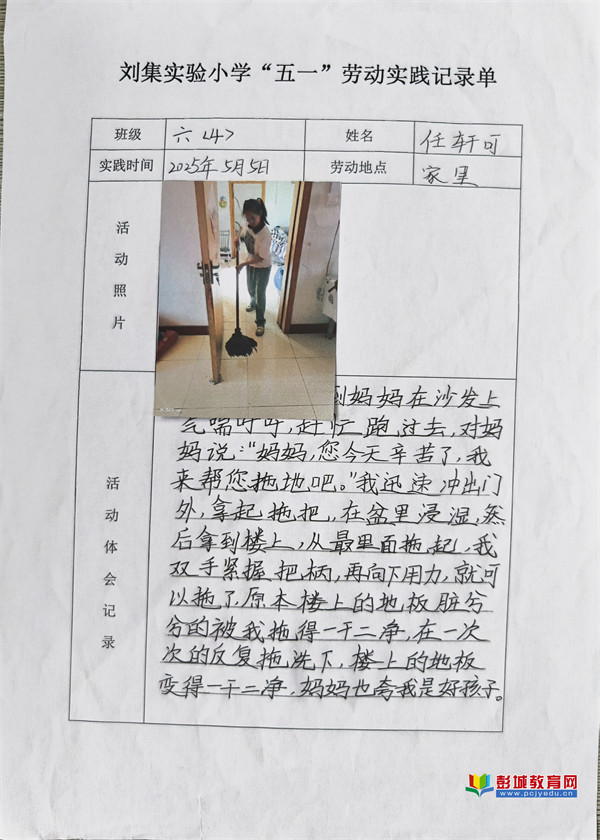 刘集实验小学“五一”劳动实践记录单
班级 六（4） 姓名 任轩可
实践时间 2025年5月5日 劳动地点 家里
活动照片
活动体会记录
到妈妈在沙发上
气喘吁吁,赶忙跑过去,对妈
妈说:“妈妈,您今天辛苦了,我
来帮您拖地吧。”我迅速冲出门
外,拿起拖把,在盆里浸湿,然
后拿到楼上,从最里面拖起,我
双手紧握把柄,再向下用力,就可
以拖了.原本楼上的地板脏兮
兮的被我拖得一干二净,在一次
次的反复拖洗下,楼上的地板
变得一干二净,妈妈也夸我是好孩子。
彭城教育网
www.pcjyedu.cn